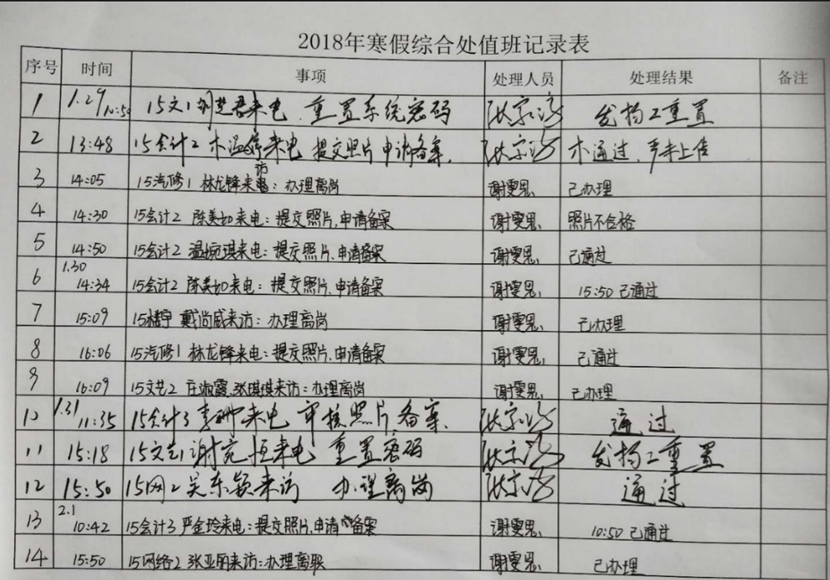 2018年寒假综合处值班记录表
序号 时间 事项 处理人员 处理结果 备注
1 1.29 10:50 15文1 来电 重置系统密码 重置
2 13:48 15会计2 来电 提交照片 申请备案.
3 14:05 15汽修1 林龙锋来访: 办理离岗 谢雯思 已办理
4 14:30 15会计2 陈美如来电: 提交照片,申请备案 谢雯思 照片不合格
5 14:50 15会计2 温婉琪来电: 提交照片,申请备案 谢雯思 已通过
6 1.30 14:34 15会计2 陈美如来电: 提交照片,申请备案 谢雯思 15:50 已通过
7 15:09 戴尚威来访: 办理离岗 谢雯思 已办理
8 16:06 15汽修1 林龙锋来电: 提交照片,申请备案 谢雯思 已通过
9 16:09 15文艺2 庄淑霞,张琪琪来访: 办理离岗 谢雯思 已办理
10 1.31 11:35 15会计3 来电 审核照片备案. 通过
11 15:18 15文艺1 来电 重置密码 重置
12 15:50 15网2 吴东颖来访 办理离岗 通过
13 2.1 10:42 15会计3 严金玲来电: 提交照片,申请备案 谢雯思 10:50 已通过
14 15:50 15网络2 张亚丽来访: 办理离职 谢雯思 已办理